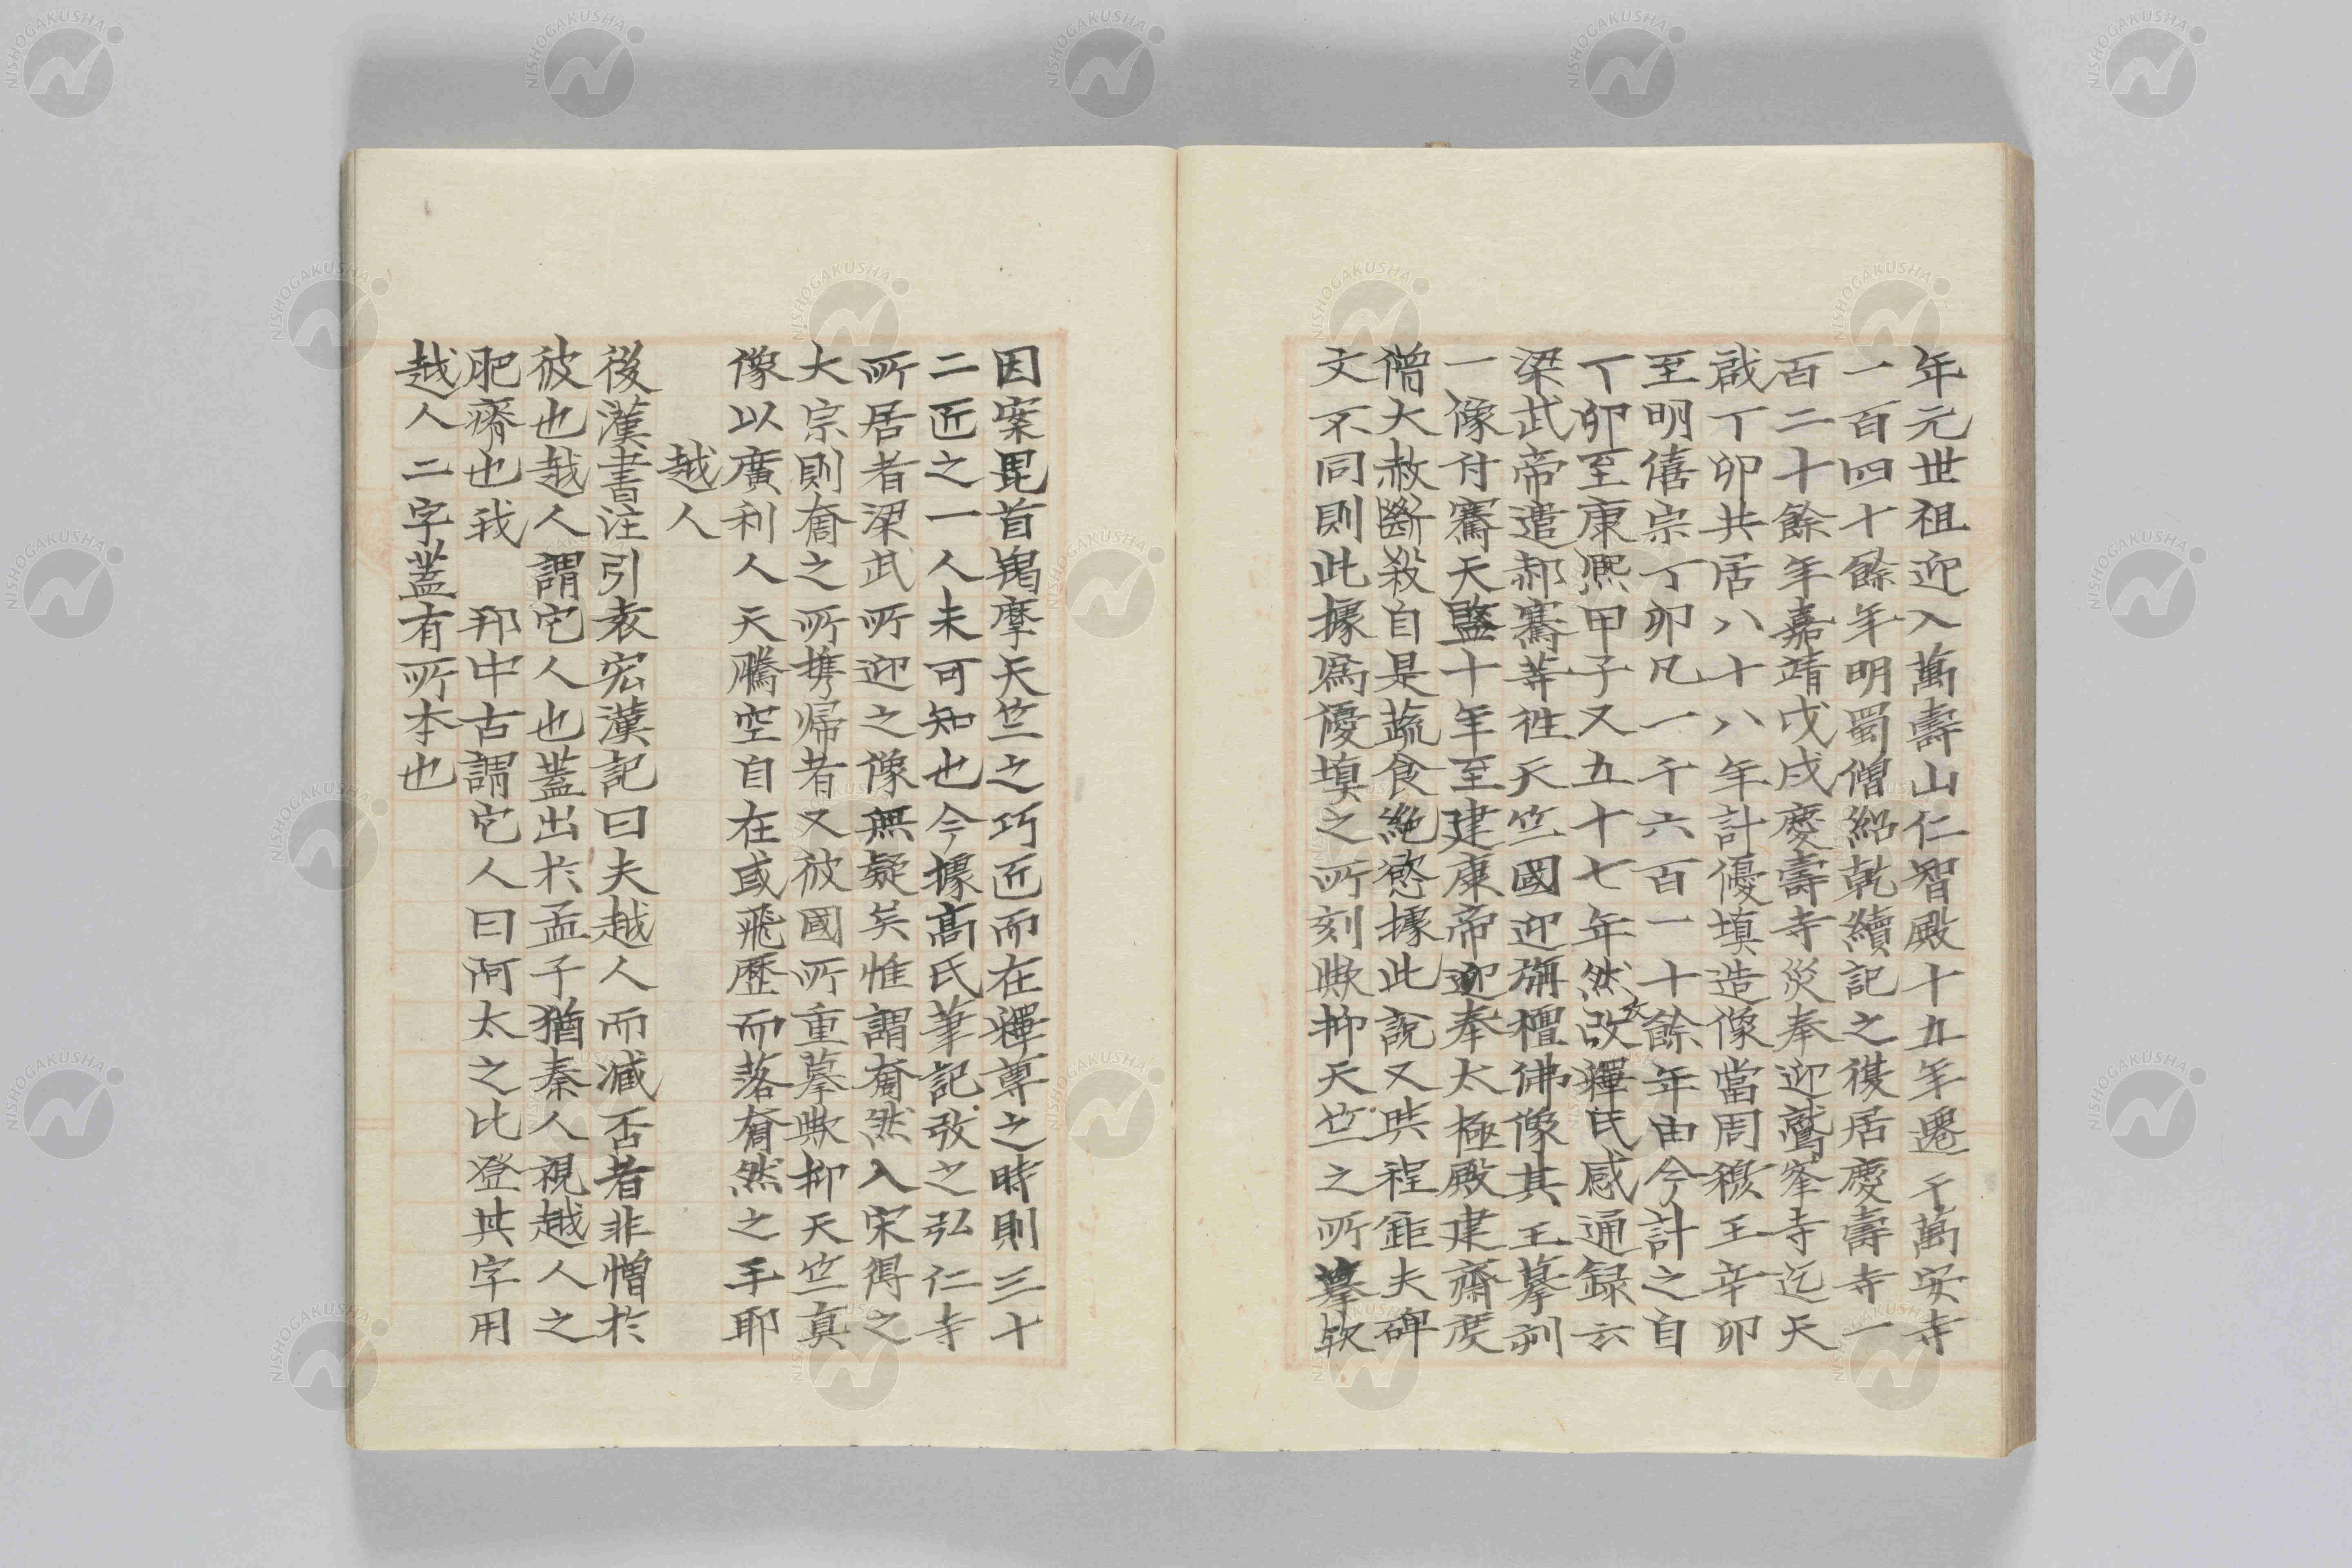 年元世祖迎入萬壽山仁智殿十五年遷于萬安寺
一百四十餘年明蜀僧紹乾續記之復居慶壽寺一
百二十餘年嘉靖戊戌慶壽寺災奉迎鷲峯寺迄天
啟丁卯共居八十八年計優填造像當周穆王辛卯
至明僖宗丁卯凡一千六百一十餘年由今計之自
丁卯至康熙甲子又五十七年然攷改釋氏感通録云
梁武帝遣郝騫等徃天竺國迎旃檀佛像其王摹刻
一像付騫天監十年至建康帝迎奉太極殿建齋度
僧大赦斷殺自是蔬食絶慾據此説又與程鉅夫碑
文不同則此據爲優填之所刻歟抑天竺之所摹欤
因案毘首羯摩天竺之巧匠而在釋尊之時則三十
二匠之一人未可知也今據髙氏筆記攷之弘仁寺
所居者梁武所迎之像無疑矣惟謂奝然入宋得之
大宗則奝之所携帰者又彼國所重摹歟抑天竺真
像以廣利人天騰空自在或飛歷而落奝然之手耶
越人
後漢書注引袁宏漢記曰夫越人而減否者非憎於
彼也越人謂它人也蓋出於孟子猶秦人視越人之
肥瘠也我 邦中古謂它人曰阿太之比登其字用
越人二字蓋有所本也
NISHOGAKUSHA